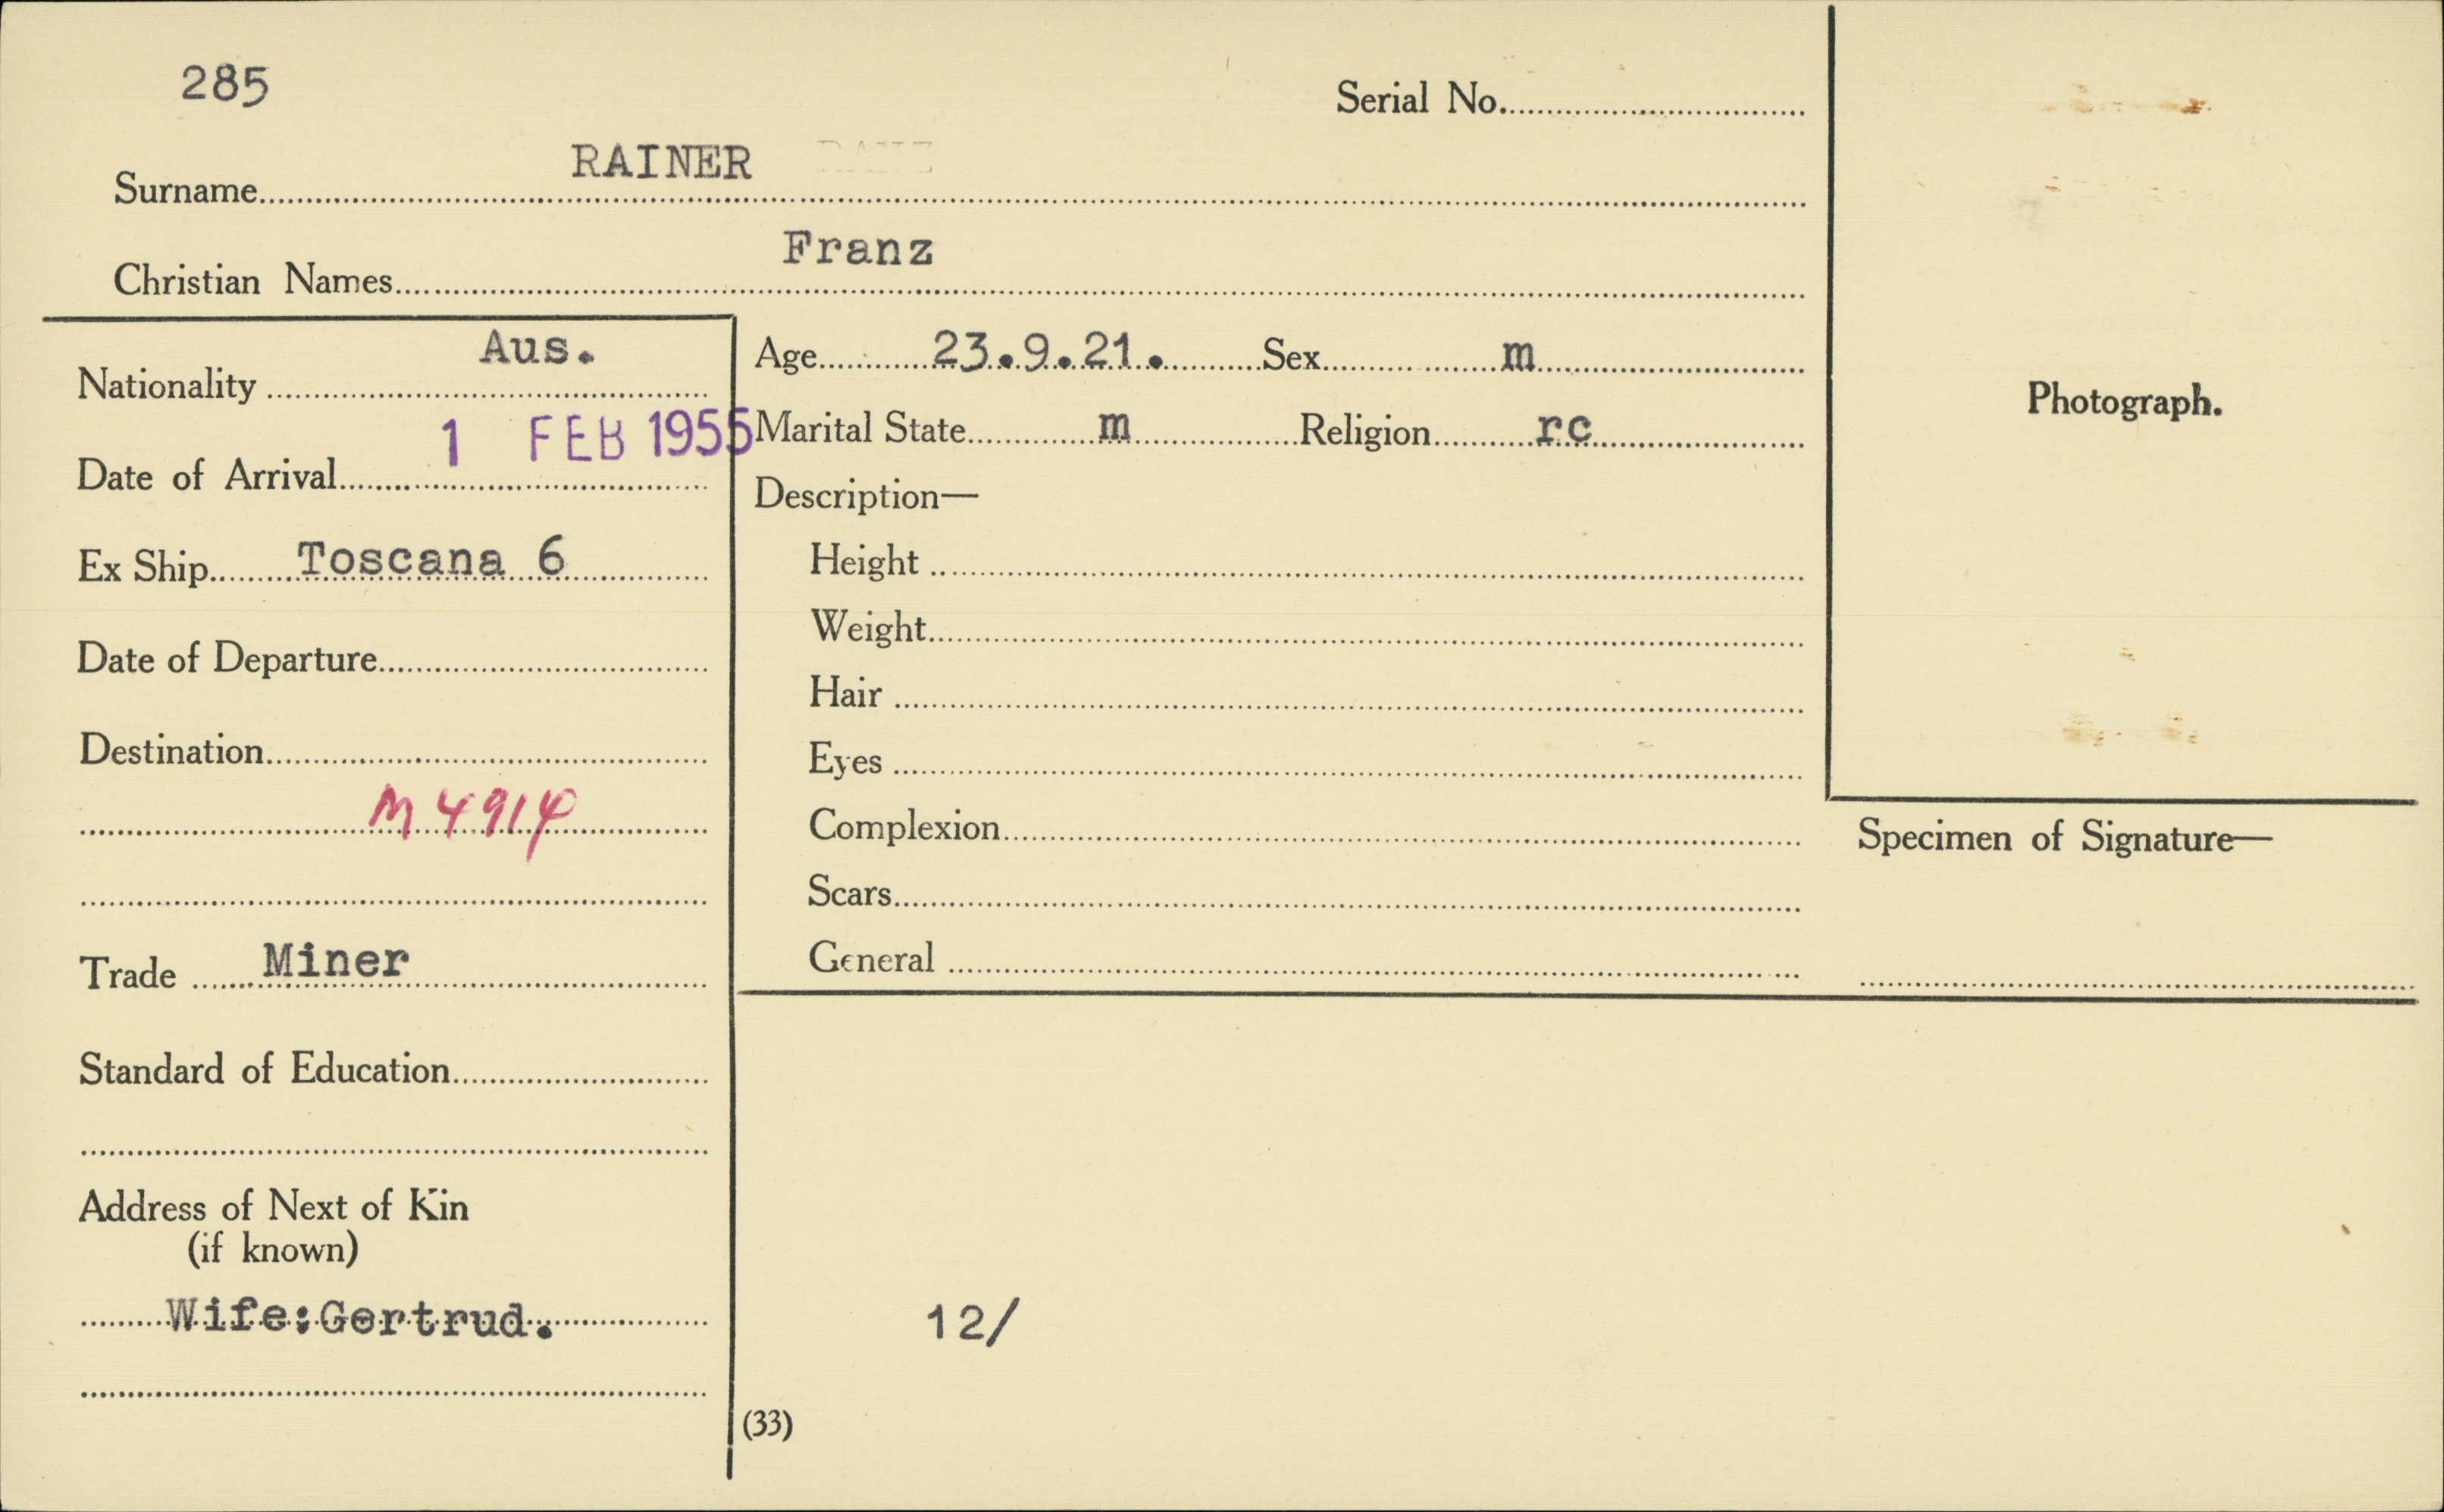 285
Serial No.
Surname RAINER
Christian Names Franz
Nationality Aus.
Date of Arrival 1 FEB 1955
Ex Ship Toscana 6
Date of Departure
Destination
M4914
Trade Miner
Standard of Education
Address of Next of Kin
(if known)
Wife:Gertrud.
Age 23.9.21. Sex m
Marital State m Religion rc
Description—
Height
Weight
Hair
Eyes
Complexion
Scars
General
12/
(33)
Photograph.
Specimen of Signature—